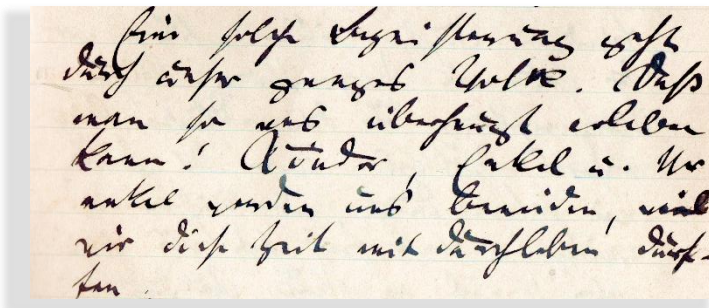 Eine solche Begeisterung geht
durch unser ganzes Volk. Daß
man so was überhaupt erleben
kann! Kinder, Enkel u. Ur
enkel werden uns beneiden, weil
wir diese Zeit mit durchleben durf-
ten.